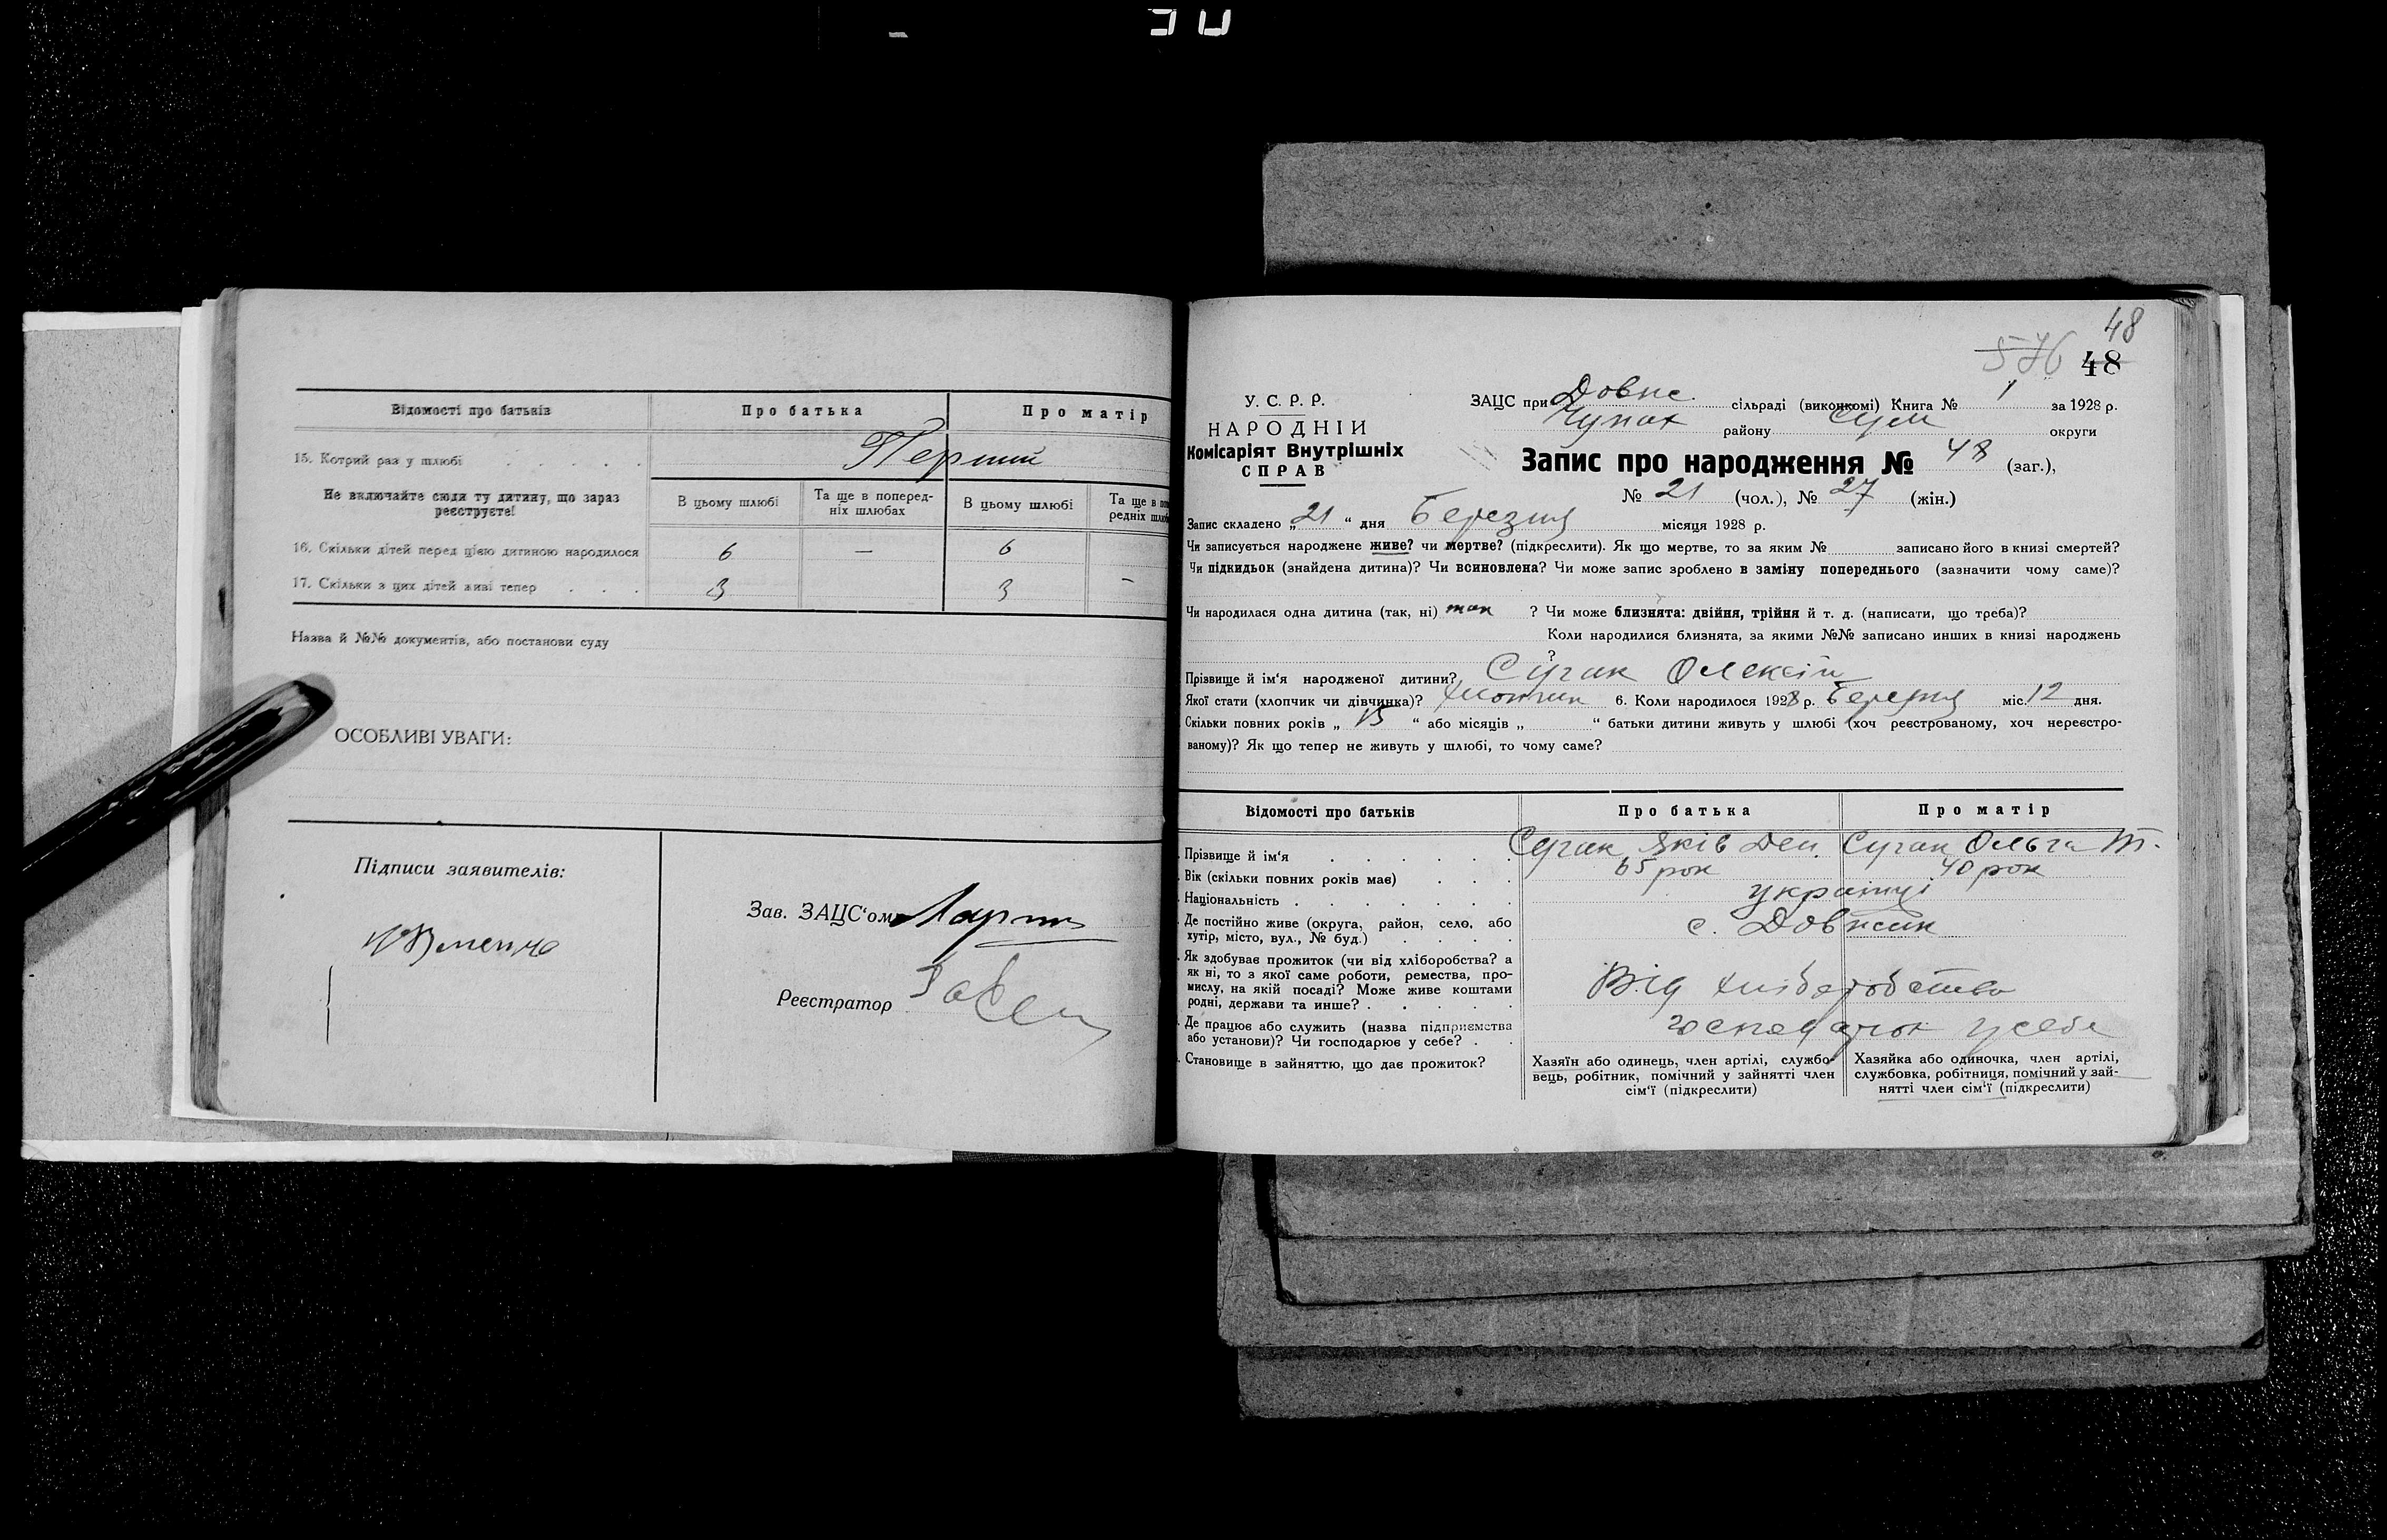 Відомості про батьків Про батька Про матір
15. Котрий раз у шлюбі . . . . . Перший
Не включайте сюди ту дитину, що зараз реєструєте!
В цьому шлюбі Та ще в поперед-ніх шлюбах В цьому шлюбі Та ще в редніх
16. Скільки дітей перед цією дитиною народилося 6 — 6
17. Скільки з цих дітей живі тепер . . . 3 3 –
Назва й №№ документів, або постанови суду
ОСОБЛИВІ УВАГИ:
Підписи заявителів:
Зав. ЗАЦС'ом
Реєстратор
48
576 48
У. С. Р. Р.
НАРОДНІЙ
Комісаріят Внутрішніх
СПРАВ
ЗАЦС при Довж. сільраді (виконкомі) Книга № 1 за 1928 р.
Чупах району Сум округи
Запис про народження № 48 (заг.),
№ 21 (чол.), № 27 (жін.)
Запис складено „21“ дня Березня місяця 1928 р.
Чи записується народжене живе? чи мертве? (підкреслити). Як що мертве, то за яким № записано його в книзі смертей?
Чи підкидьок (знайдена дитина)? Чи всиновлена? Чи може запис зроблено в заміну попереднього (зазначити чому саме)?
Чи народилася одна дитина (так, ні) так ? Чи може близнята: двійня, трійня й т. д. (написати, що треба)?
Коли народилися близнята, за якими №№ записано инших в книзі народжень
?
Прізвище й ім'я народженої дитини? Сугак Олексій
Якої стати (хлопчик чи дівчинка)? Хлопчик 6. Коли народилося 1928 р. Березня міс. 12 дня.
Скільки повних років „ 15 “ або місяців „ “ батьки дитини живуть у шлюбі (хоч реєстрованому, хоч нереєстро-
ваному)? Як що тепер не живуть у шлюбі, то чому саме?
Відомості про батьків Про батька Про матір
Прізвище й ім'я . . . . . . Сугак Яків Дем. Сугак Ольга Т.
Вік (скільки повних років має) . . . 65 рок 40 рок
Національність . . . . . . . українці
Де постійно живе (округа, район, село, або
хутір, місто, вул., № буд.) . . . . с. Довжик
Як здобуває прожиток (чи від хліборобства? а
як ні, то з якої саме роботи, ремества, про-
мислу, на якій посаді? Може живе коштами
родні, держави та инше? . . . . . Від хліборобства
Де працює або служить (назва підприємства
або установи)? Чи господарює у себе? . . господарює у себе
Становище в зайняттю, що дає прожиток?
Хазяїн або одинець, член артілі, службо-
вець, робітник, помічний у зайнятті член
сім'ї (підкреслити)
Хазяйка або одиночка, член артілі,
службовка, робітниця, помічний у зай-
нятті член сім'ї (підкреслити)